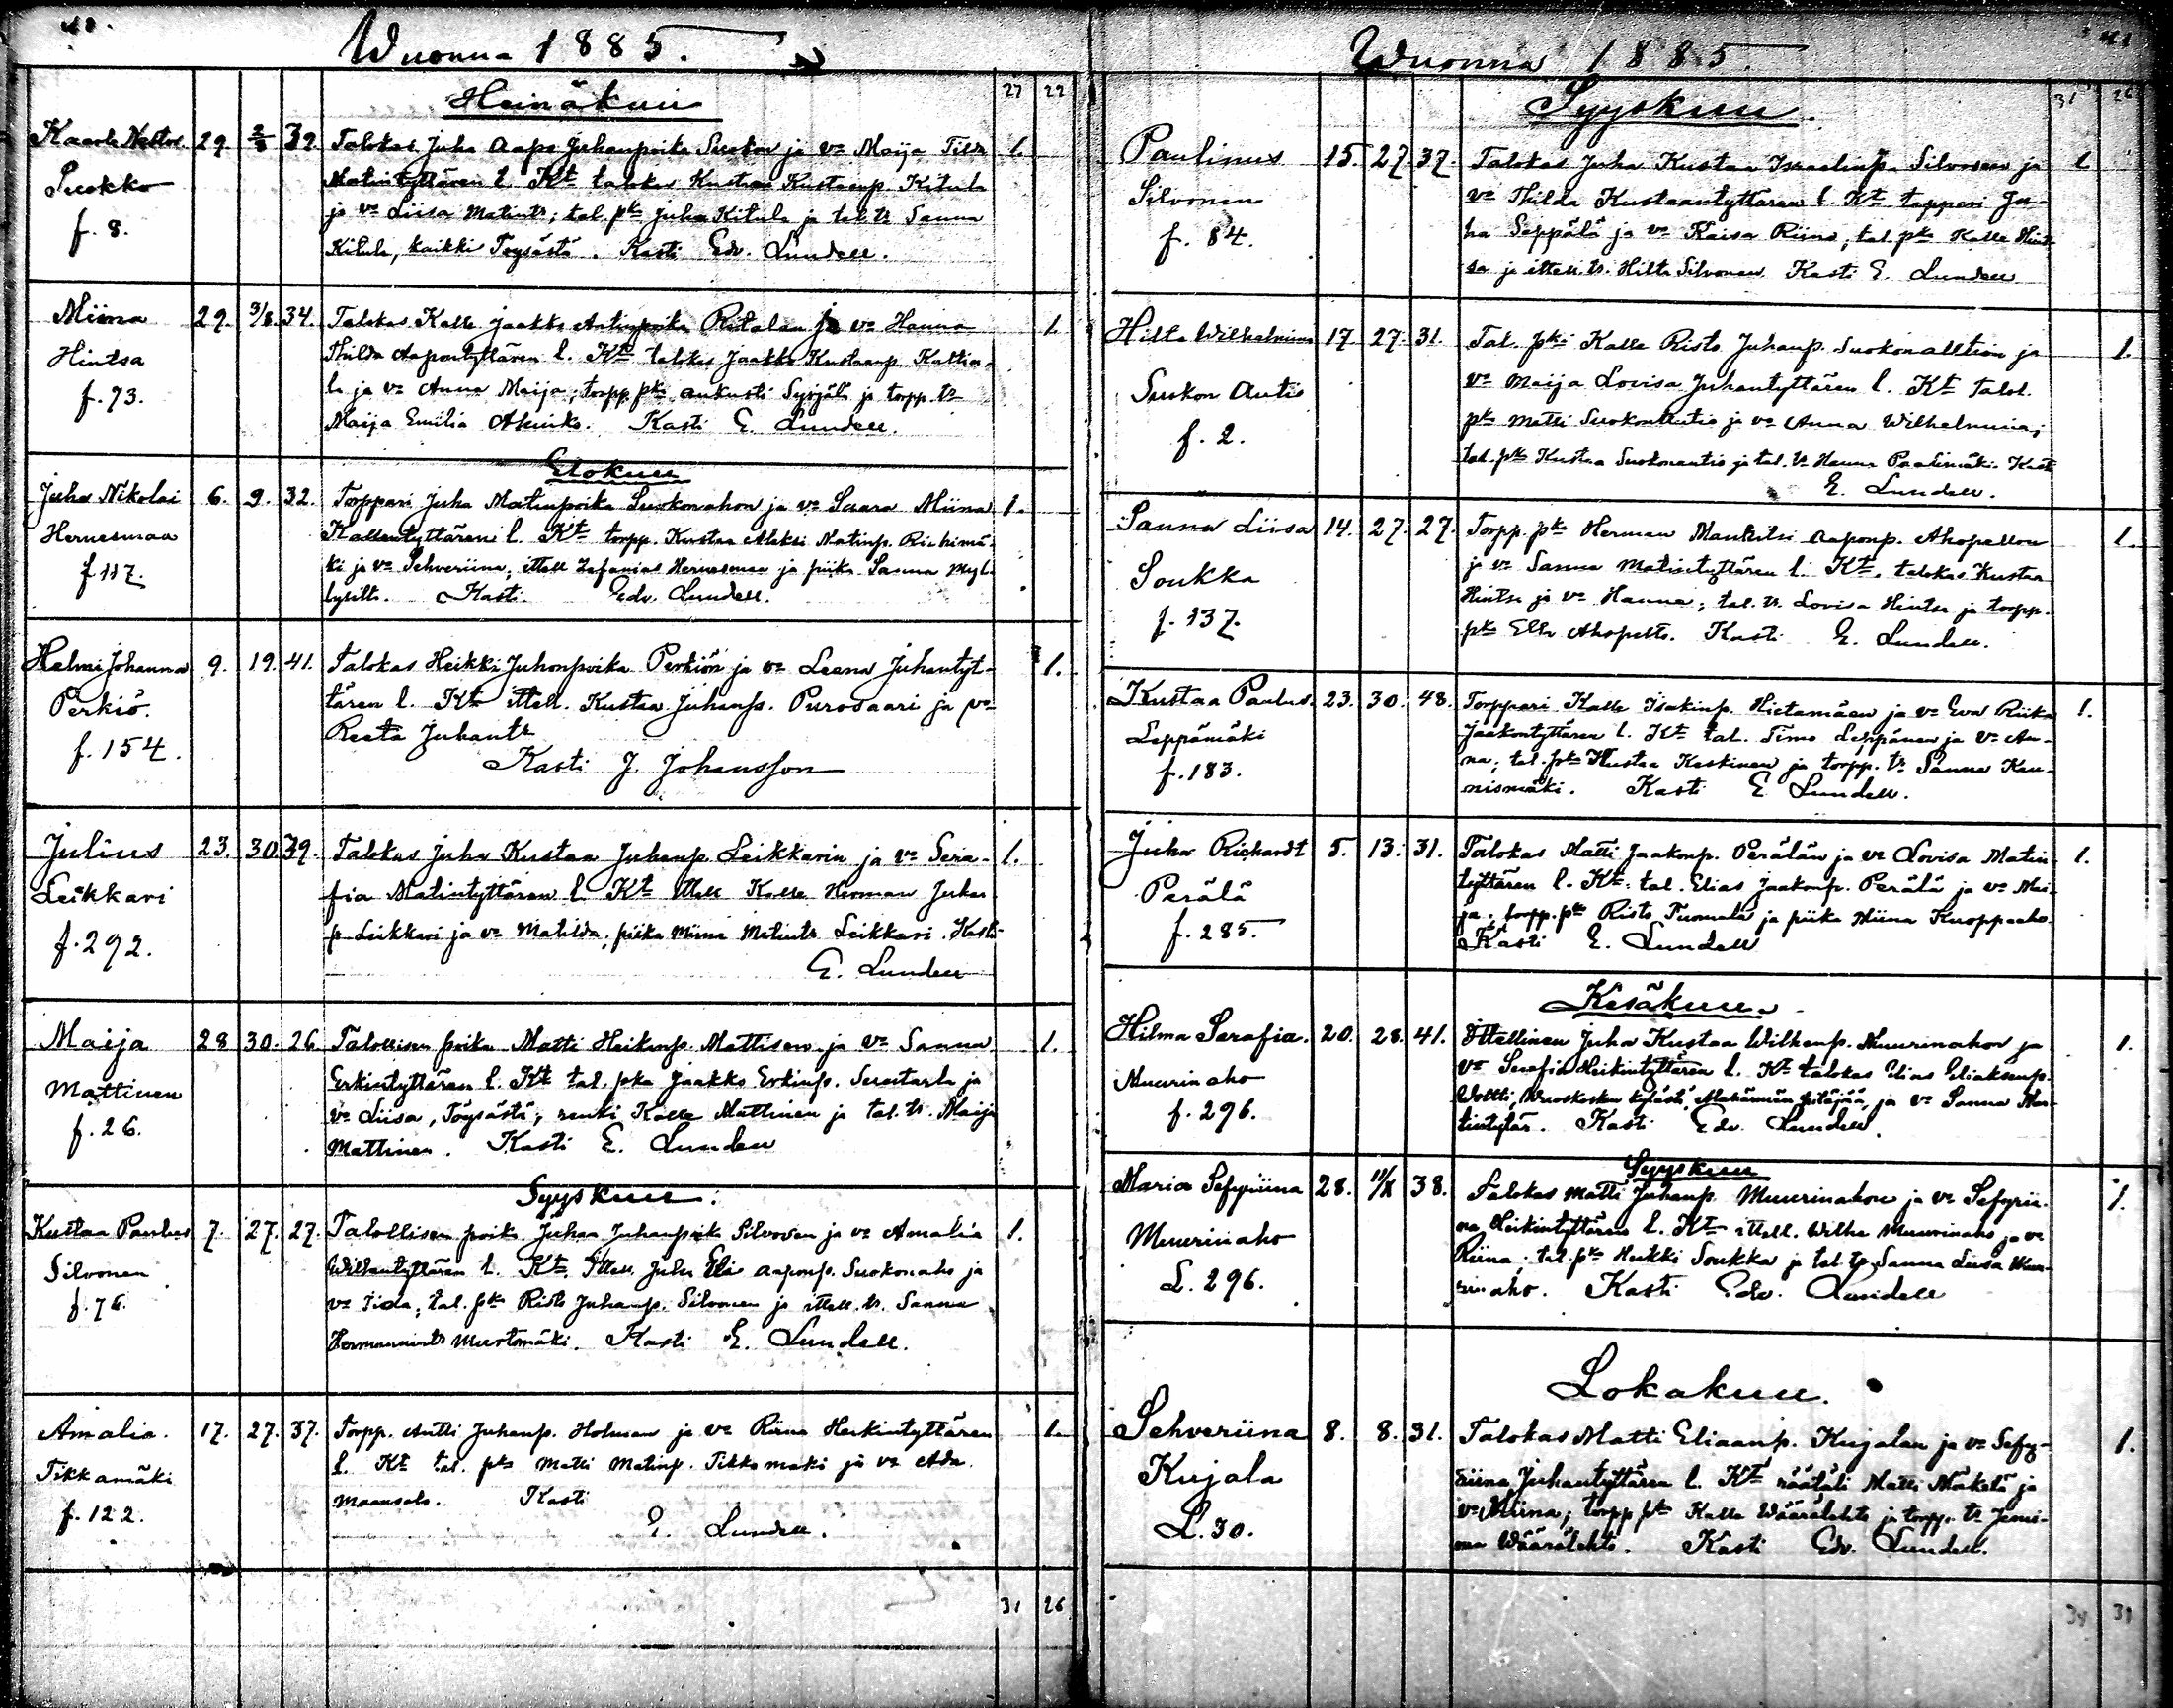 Wuonna 1885.
27 22
Heinäkuu
Kaarle Nestor 29. 2/8 39. Talokas Juha Aape Juhanpoika Suokon ja vo Maija Tilda 1.
Suokko Matintyttären l. Kt talokas Kustaa Kustaanp. Kitula
f. 8. ja vo Liisa Matintr; tal. pka Juha Kitula ja tal. tr Sanna
Kitula, kaikki Töysästä. Kasti Edv. Lundell.
Miina 29. 9/8. 34. Talokas Kalle Jaakko Antinpoika Ritalan ja vo Hanna 1.
Hintsa Thilda Aapontyttären l. Kt talokas Jaakko Kustaanp. Kaltia-
f. 73. la ja vo Anna Maija; torpp. pka Aukusti Syrjälä ja torpp. tr
Maija Emilia Kasti E. Lundell.
Elokuu
Juha Nikolai 6. 9. 32. Torppari Juha Matinpoika Suokonahon ja vo Saara Miina 1.
Hernesmaa Kallentyttären l. Kt torpp. Kustaa Aleksi Matinp. Riihimä-
f 117. ki ja vo Sehveriina; ittell Zefanias Hernesmaa ja piika Sanna Myl-
lysilta. Kasti Edv. Lundell.
Helmi Johanna 9. 19. 41. Talokas Heikki Juhonpoika Perkiön ja vo Leena Juhantyt- 1.
Perkiö. tären l. Kt ittell. Kustaa Juhanp. Purosaari ja vo
f. 154. Reeta Juhantr
Kasti J. Johansson
Julius 23. 30 39. Talokas Juha Kustaa Juhanp. Leikkarin ja vo Sera- 1.
Leikkari fia Matintyttären l. Kt ittell Kalle Herman Juhan
f. 292. p. Leikkari ja vo Matilda, piika Miina Matintr Leikkari. Kasti
E. Lundell
Maija 28 30. 26. Talollisen poika Matti Heikinp. Mattisen ja vo Sanna 1.
Mattinen Erkintyttären l. Kt tal. pka Jaakko Erkinp. ja
f. 26. vo Liisa, Töysästä; renki Kalle Mattinen ja tal. tr. Maija
Mattinen. Kasti E. Lundell
Syyskuu.
Kustaa Paulus 7. 27. 27. Talollisen poika Juhan Juhanpoika Silvosen ja vo Amalia 1.
Silvonen Wilhentyttären l. Kt. Ittell. Juha Elias Aaponp. Suokonaho ja
f. 76. vo Tiida, tal. pka Risto Juhanp. Silvonen ja ittell. tr. Sanna
Mustamäki. Kasti E. Lundell.
Amalia. 17. 27. 37. Torpp. Antti Juhanp. Holman ja vo Riina Heikintyttären 1.
Tikkamäki l. Kt tal. pka Matti Matinp. Tikkamäki ja vo Ada
f. 122. Maansalo. Kasti
E. Lundell.
31 26
Wuonna 1885.
31 26
Syyskuu.
Paulinus 15. 27. 37. Talokas Juha Kustaa Israelinp. Silvosen ja 1.
Silvonen vo Thilda Kustaantyttären l. Kt torppari Ju-
f. 84. ha Seppälä ja vo Kaisa Riina, tal. pka Kalle Hint-
sa ja ittell. tr. Hilta Silvonen. Kasti E. Lundell
Hilta Wilhelmiina 17. 27. 31. Tal. pka Kalle Risto Juhanp. ja 1.
Suokon Autio vo Maija Lovisa Juhantyttären l. Kt talol.
f. 2. pka Matti Suokonautio ja vo Anna Wilhelmina;
tal. pka Kustaa Suokonautio ja tal. tr Hanna Paalimäki. Kasti
E. Lundell.
Sanna Liisa 14. 27. 27. Torpp. pka Herman Manasse Aaponp. Ahopellon 1.
Soukka ja vo Sanna Matintyttären l. Kt. talokas Kustaa
f. 137. Hintsa ja vo Hanna; tal. tr. Lovisa Hintsa ja torpp.
pka Ahopelto. Kasti E. Lundell.
Kustaa Paulus. 23. 30. 48. Torppari Kalle Isakinp. Hietamäen ja vo Eva Riika 1.
Leppämäki Jaakontyttären l. Kt tal. Simo Leppänen ja vo An-
f. 183. na; tal. pka Kustaa Keskinen ja torpp. tr Sanna Kau-
nismäki. Kasti E Lundell.
Juha Richardt 5. 13. 31. Talokas Matti Jaakonp. Perälän ja vo Lovisa Matin- 1.
Perälä tyttären l. Kt. tal. Elias Jaakonp. Perälä ja vo Mai-
f. 285. ja. torpp. pka Risto Tuomala ja piika Miina Kuoppaaho.
Kasti E. Lundell
Kesäkuu.
Hilma Serafia. 20. 28. 41. Ittellinen Juha Kustaa Wilhenp. Muurinahon ja 1.
Muurinaho vo Serafia Heikintyttären l. Kt talokas Elias Eliaksenp.
f. 296. Woltti, Wuoskosken kylästä, Alahärmän pitäjää, ja vo Sanna Ma-
tintytär. Kasti Edv. Lundell.
Syyskuu
Maria Sefyriina 28. 11/X 38. Talokas Matti Juhanp. Muurinahon ja vo Sefyrii- 1.
Muurinaho na Heikintyttären l. Kt ittell. Wilhe Muurinaho ja vo
L. 296. Riina; tal. pka Heikki Soukka ja tal. tr Sanna Liisa Muu-
rinaho. Kasti Edv. Lundell
Lokakuu.
Sehveriina 8. 8. 31. Talokas Matti Eliaanp. Kujalan ja vo Sefy- 1.
Kujala riina Juhantyttären l. Kt räätäli Matti Mäkelä ja
L. 30. vo Miina; torpp. pka Kalle Wäärälehto ja torpp. tr Jemi-
ma Wäärälehto. Kasti Edv. Lundell.
34 31